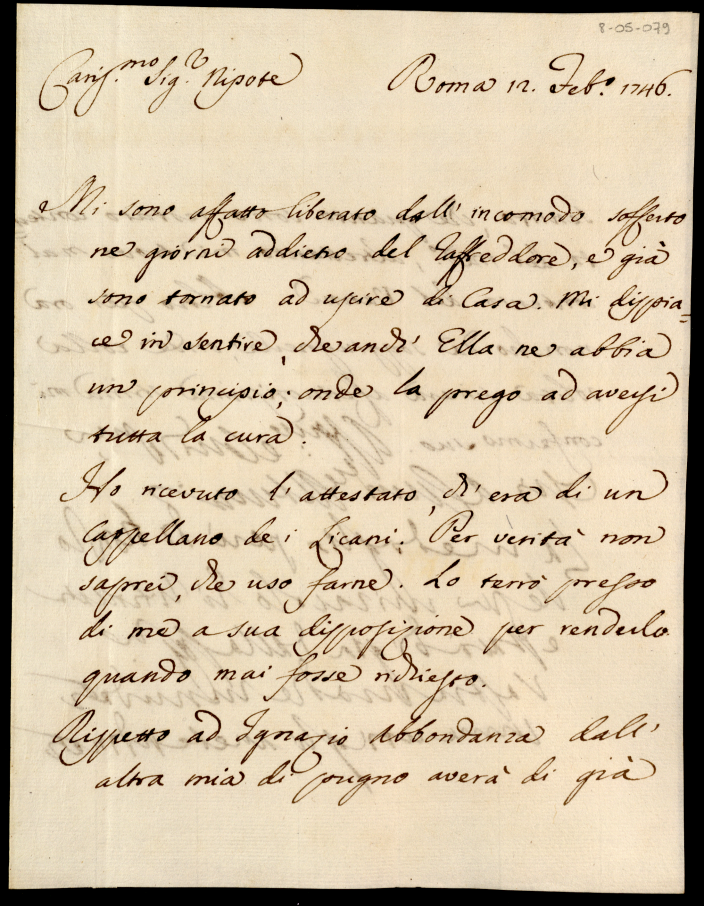 8-05-079
Cariss.mo Sig.r Nipote
Roma 12. Feb.o 1746.
Mi sono affatto liberato dall' incomodo sofferto
ne giorni addietro del Raffreddore, e già
sono tornato ad uscire di Casa. Mi dispia=
ce in sentire, che anch' Ella ne abbia
un principio; onde la prego ad aversi
tutta la cura.
Ho ricevuto l' attestato, ch' era di un
Cappellano de i Licani. Per verità non
saprei, che uso farne. Lo terrò presso
di me a sua disposizione per renderlo
quando mai fosse richiesto.
Rispetto ad Ignazio Abbondanza dall'
altra mia di pugno averà di già